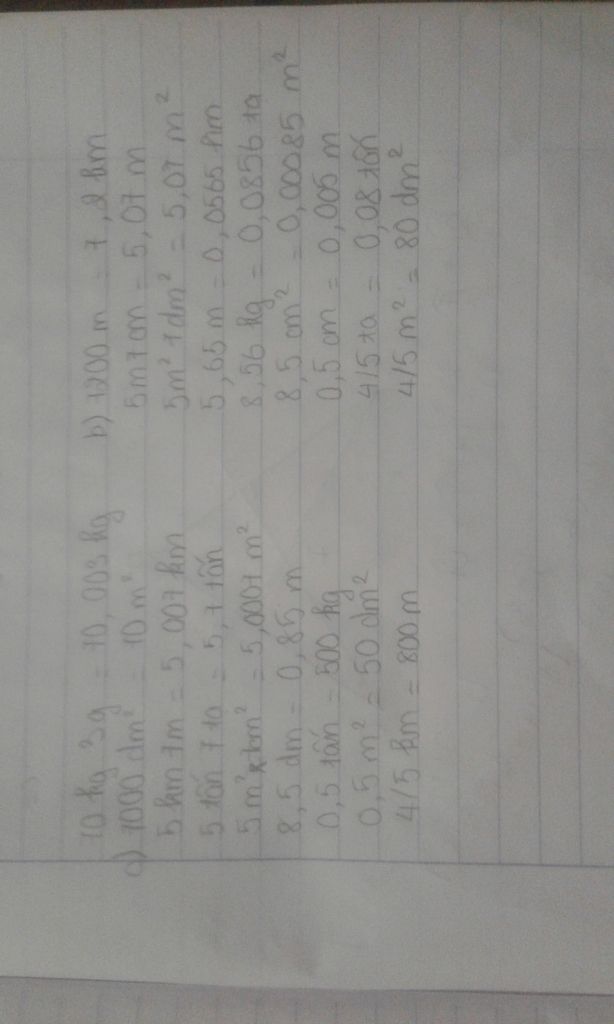 10 kg 3g = 10,003 kg
a) 1000 dm² = 10 m²
5 km 7m = 5,007 km
5 tấn 7 tạ = 5,7 tấn
5 m² 7cm² = 5,0007 m²
8,5 dm = 0,85 m
0,5 tấn = 500 kg
0,5 m² = 50 dm²
4/5 km = 800 m
b) 1200 m = 1,2 km
5m7cm = 5,07 m
5m² 7dm² = 5,07 m²
5,65 m = 0,0565 hm
8,56 kg = 0,0856 tạ
8,5 cm² = 0,00085 m²
0,5 cm = 0,005 m
4/5 tạ = 0,08 tấn
4/5 m² = 80 dm²